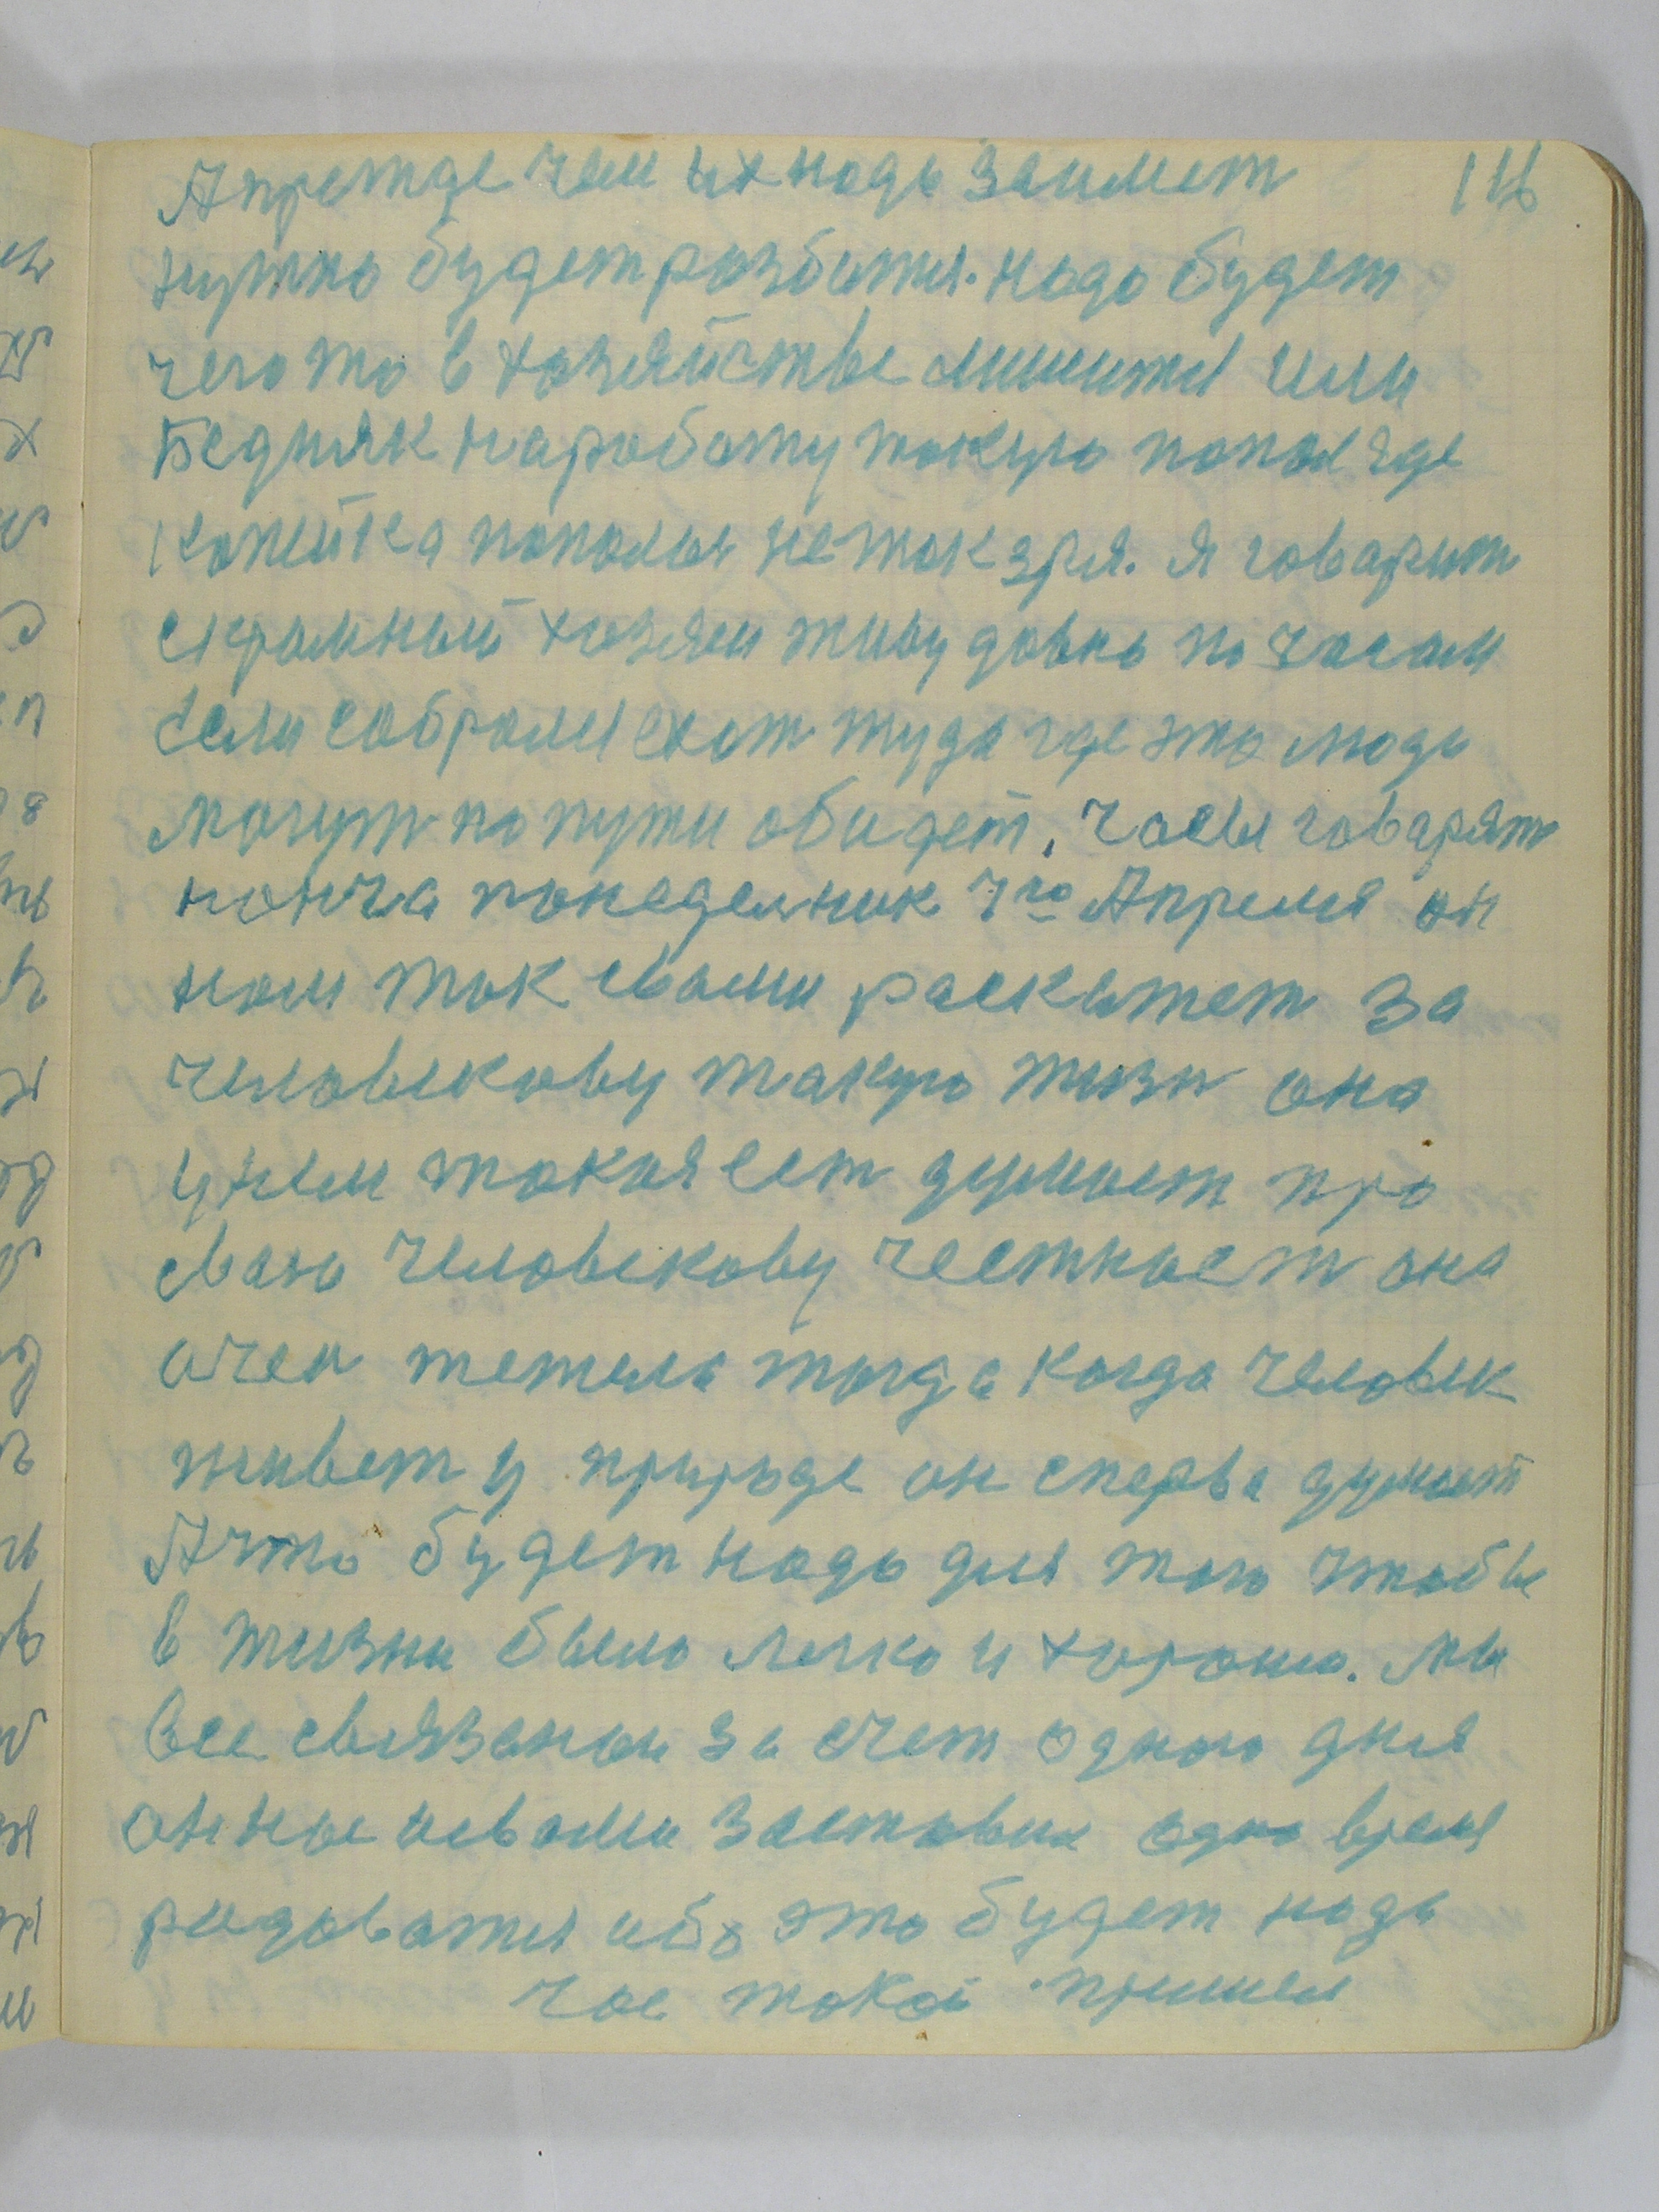 116
Апрежде чем ихнадо заимет
нужно будет розбитя. надо будет
чегото в хозяйстве лишитя или
Бедняк наработу такую попал где
копейка попалы нетак зря. я говарит
скрамный хозяен живу давно по часам
Если собралися ехат туда где это люди
могут по пути обидет, часы говарят
нонча понеделник 7го Апреля он
нам так свами раскажет за
человекову такую жизн она
унем такая ест думает про
сваю человекову честност она
очен тежела тогда когда человек
живет у природе он сперва думает
Ачто будет надо для того чтобы
в жизни было легко и хорошо. мы
все связаны за счет одного дня
он нас исвами заставил одно время
радоватя ибо это будет надо
час такой пришел